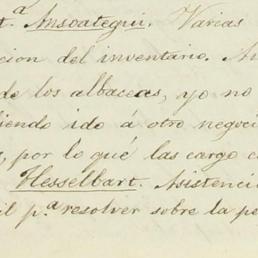 t.ª Ansoategui. Varias
cion del inventario. An
de los albaceas, yo no
iendo ido á otro negoci
, por lo qué las cargo c
Hesselbart. Asistenci
il p.ª resolver sobre la pe